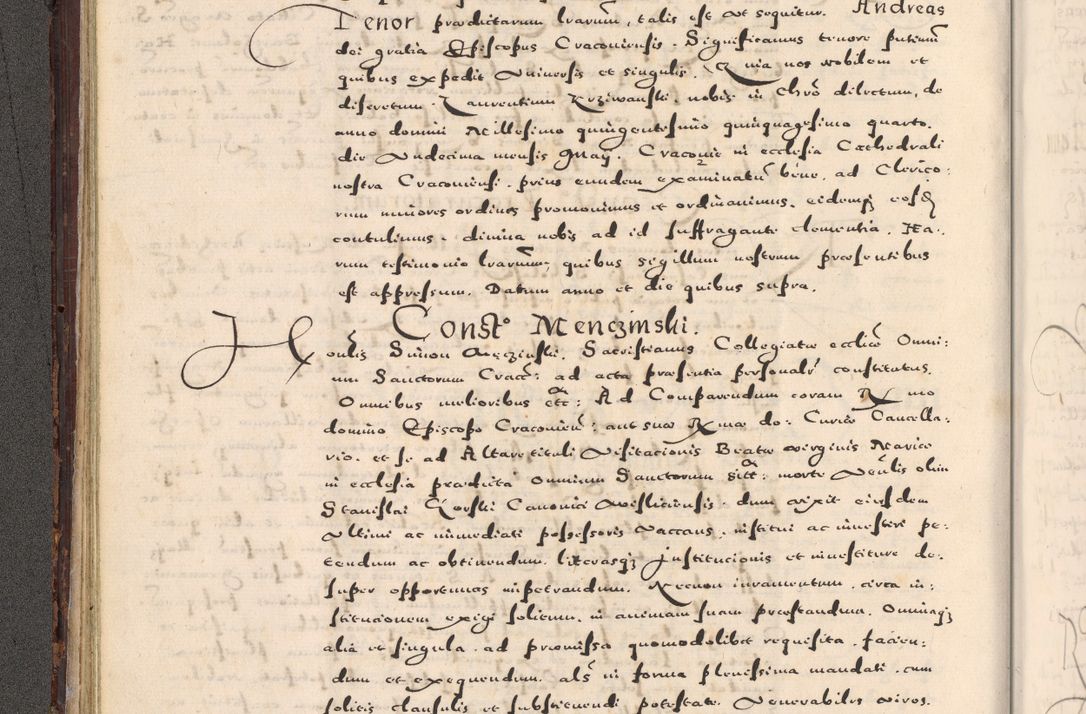 Tenor prædictarum l̃rarum, talis est vt sequitur. Andreas
dei gratia Episcopus Cracouiensis. Significamus tenore p̃ntium
quibus expedit vniuersis et singulis. Quia nos nobilem et
discretum Laurentium Krziwanski, nobis in Chr̃o dilectum, de
anno domini Millesimo quingentesimo quinquagesimo quarto.
die vndecima mensis May. Cracouie in ecclesia Cathedrali
nostra Cracouiensi. prius eundem examinatũ bene, ad Clerico:
rum minores ordines promouimus et ordinauimus. eidemq̃ eosd̃
contulimus. diuina nobis ad id suffragante clementia. Ha:
rum testimonio l̃rarum, quibus segillum nostrum præsentibus
est appressum. Datum anno et die quibus supra.
Const° Menczinski.
Honlis Simon Menczinski. Sacristianus Collegiatæ ecclĩæ Omni:
um Sanctorum Crac̃: ad acta præsentia personalr̃ constitutus.
Omnibus melioribus etc̃: Ad Comparendum coram Rmo
domino Episcopo Cracouieñ: aut suæ Rmæ do: Curiæ Cancella:
rio. et se ad Altare tituli Visitacionis Beatæ virginis Mariæ
in ecclesia prædicta Omnium Sanctorum sit̃t: morte Veñlis olim
Stanislai Kowski Canonici Wisliciensis. dum vixit eiusdem
vltimi ac immediati possessoris vaccans. institui ac inuestiri pe:
tendum ac obtinendum. literasq̃ Institucionis et inuestiture de:
super opportunas impetrandum. Necnon iuramentum. circa in:
stitucionem exigi solitum. in animam suam præstandum. Omniaq̃
alia et singula. ad præmissa quomodolibet requisita. facien:
dum et exequendum. als̃ in forma plenissima mandati. cum
solitis clausulis et substituendi potestate. Venerabiles viros.